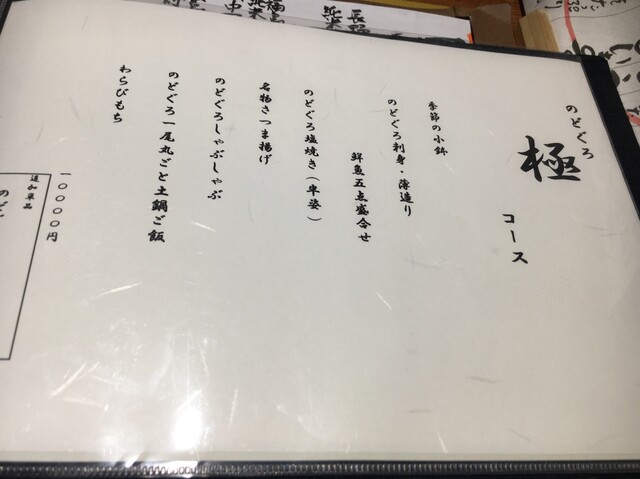 のどぐろ
極
コース
季節の小鉢
のどぐろ刺身・薄造り
鮮魚五点盛合せ
のどぐろ塩焼き(半姿)
名物さつま揚げ
のどぐろしゃぶしゃぶ
のどぐろ一尾丸ごと土鍋ご飯
わらびもち
一〇〇〇〇円
追加単品
のど